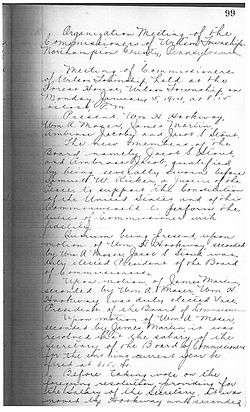 99
Organization Meeting of the
Commissioners of Wilson Township
Northampton County, Pennsylvania
Meeting of Commissioners
of Wilson Township held at the
House, Wilson Township on
Monday January 5, at 8.15
o'clock P.M.
Present Wm H. Hookway,
Wm A. Moser, James Martin,
Ambrose Jacoby and Jacob E. Stouk.
The new members of the
Board namely Jacob E. Stouk
and Ambrose Jacoby, qualified
by being severally sworn before
of the
Peace to support the Constitution
of the United States and of this
Commonwealth & perform the
duties of Commissioner with
fidelity.
A quorum being present upon
motion of Wm H Hookway, seconded
by Wm A Moser, Jacob E Stouk was
duly elected President of the Board
of Commissioners.
Upon motion of James Martin
seconded by Wm A. Moser Wm H
Hookway was duly elected Vice
President of the Board of Commissioners
Upon motion of Wm A. Moser
seconded by James Martin it was
resolved that the salary of the
Secretary of the Board of Commissioners
for the current year be
fixed at
Before taking vote on the
foregoing resolution providing for
the Salary of the Secretary,
moved by Hookway and seconded